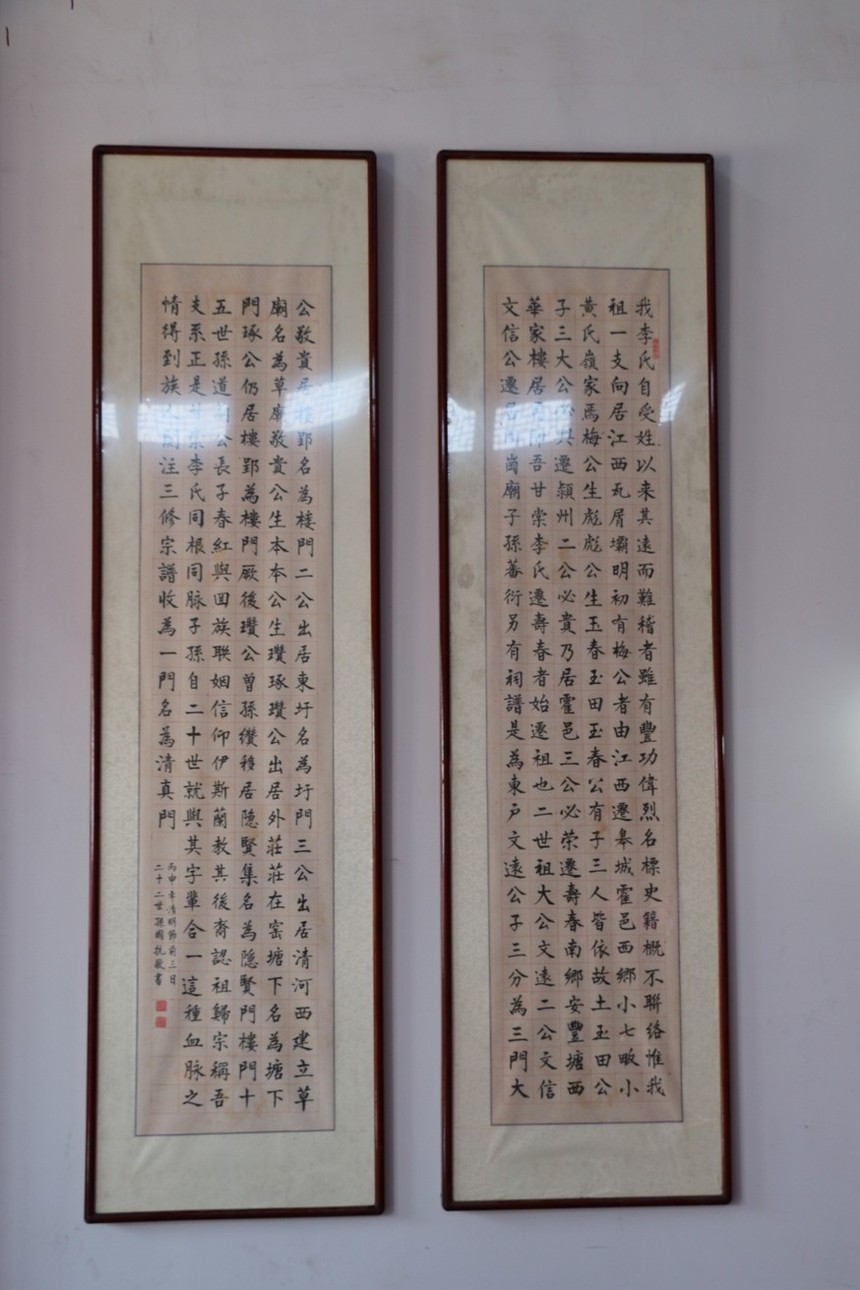 我李氏自受姓以来其遠而難稽者雖有豐功偉烈名標史籍概不聯絡惟我
祖一支向居江西瓦屑壩明初有梅公者由江西遷皋城霍邑西鄉小七畈小
黄氏嶺家焉梅公生彪彪公生玉春玉田玉春公有子三人皆依故土玉田公
子三大公必其遷潁州二公必貴乃居霍邑三公必荣遷壽春南鄉安豐塘西
華家樓居吾甘棠李氏遷壽春者始遷祖也二世祖大公文遠二公文信
文信公遷居崗廟子孫蕃衍另有祠譜是為東户文遠公子三分為三門大
公敬貴居樓郢名為樓門二公出居東圩名為圩門三公出居清河西建立草
廟名為草廟敬貴公生本本公生瓚琢瓚公出居外莊莊在窑塘下名為塘下
門琢公仍居樓郢為樓門厥後瓚公曾孫纘移居隐賢集名為隐賢門樓門十
五世孫道公長子春紅與回族聯姻信仰伊斯蘭教其後裔認祖歸宗稱吾
支系正是甘棠李氏同根同脉子孫自二十世就與其字輩合一這種血脉之
情得到族注三修宗譜收為一門名為清真門
丙申年清明節前三日
二十二世孫國敬書